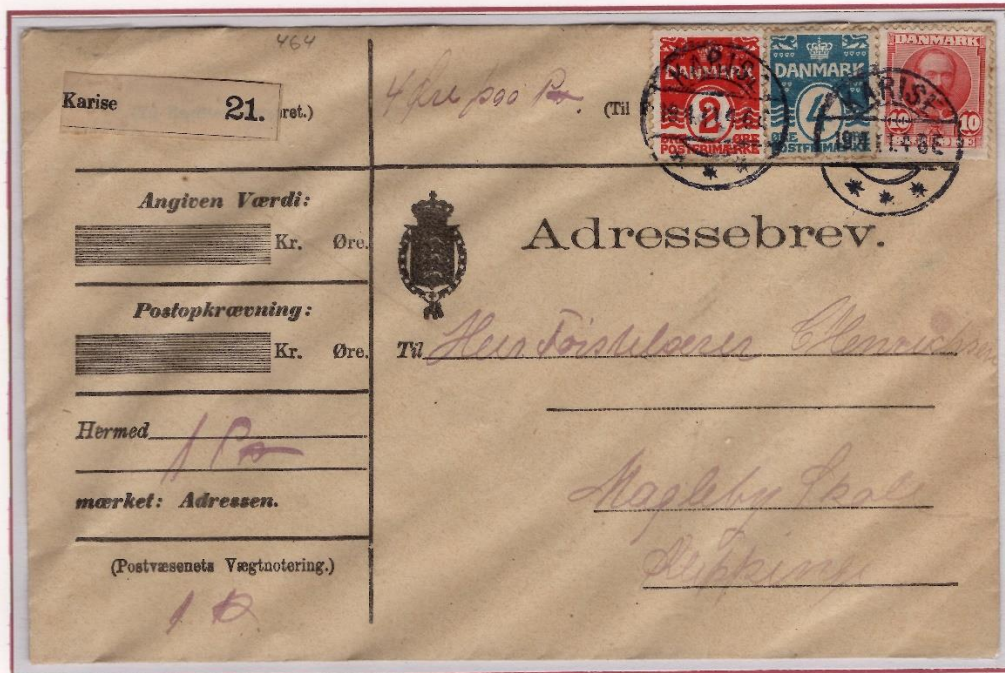 464
Karise 21.
ret.)
(Til
DANMARK
2
ØRE ØRE
POSTFRIMÆRKE
DANMARK
4
ØRE ØRE
POSTFRIMÆRKE
DANMARK
10 10
KARISE
KARISE
Angiven Værdi:
Kr. Øre.
Postopkrævning:
Kr. Øre.
Hermed 1 Pa
mærket: Adressen.
(Postvæsenets Vægtnotering.)
Adressebrev.
Til Herr Førstelærer
Magleby Skole